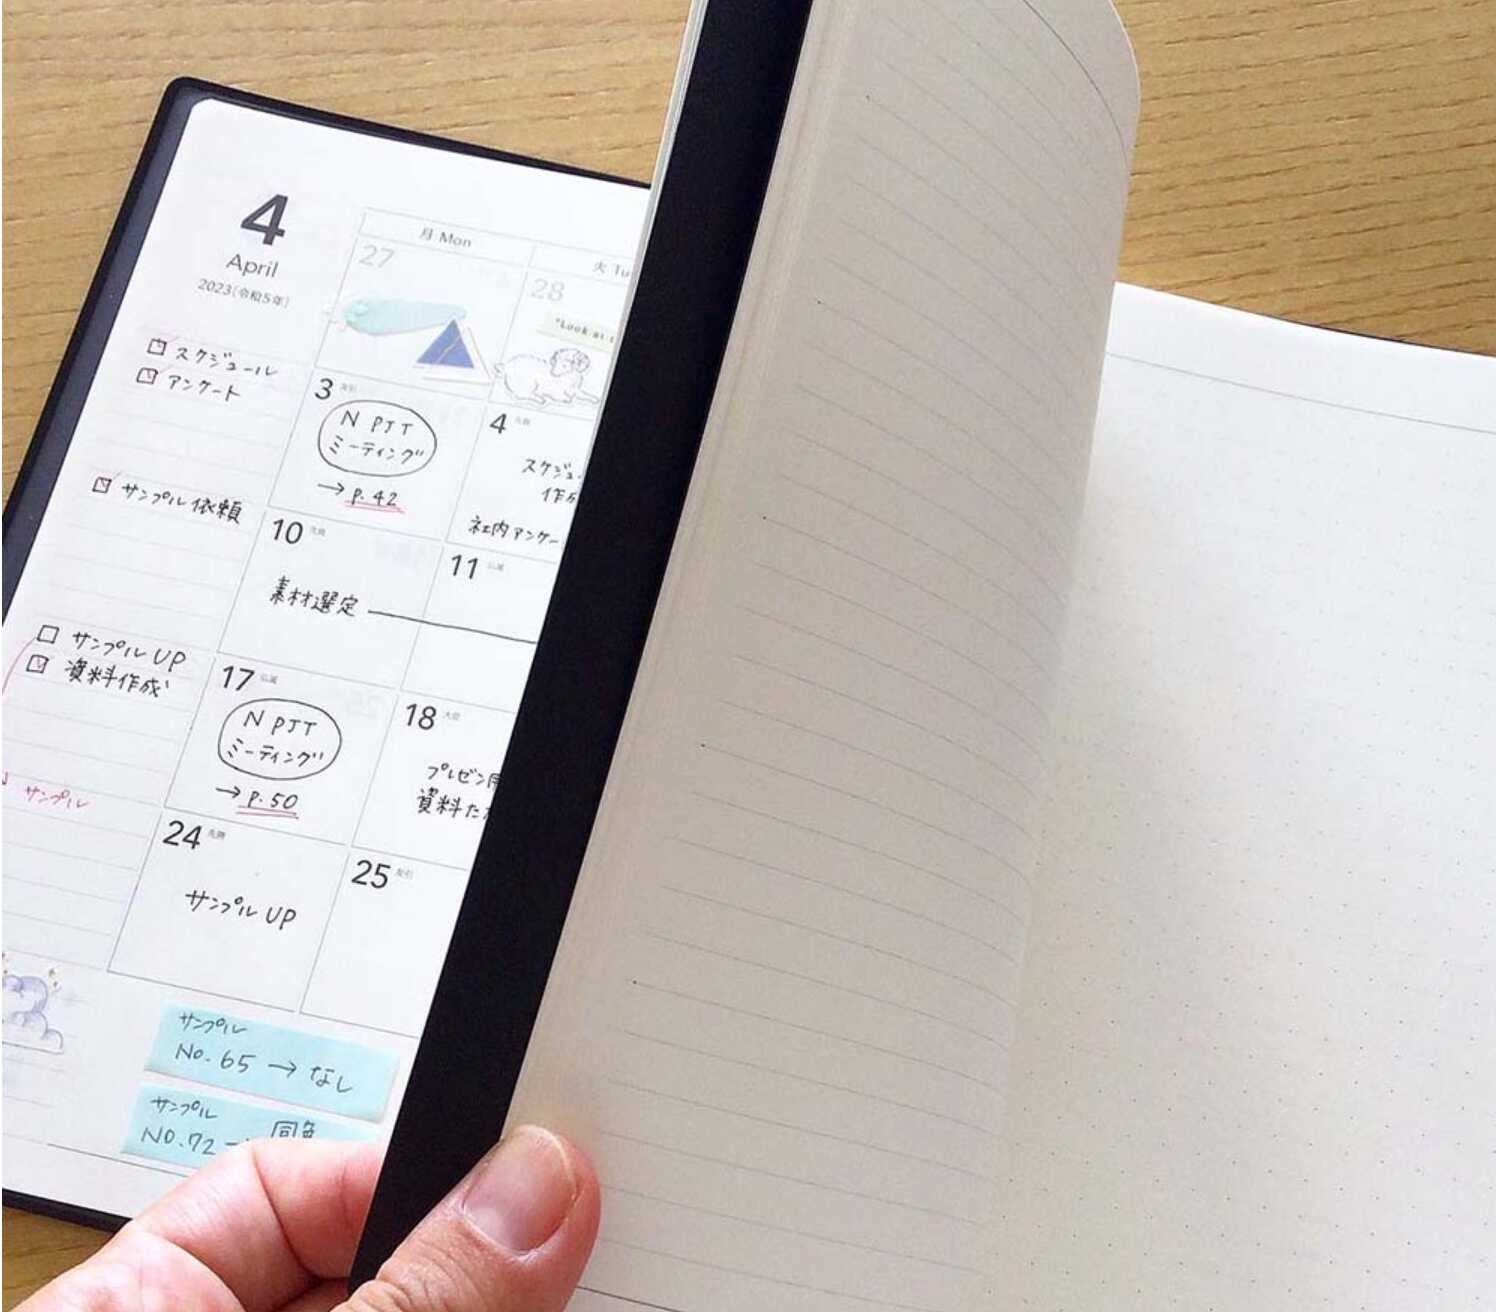 4
April
2023(令和5年)
月 Mon
火 Tu
27
28
"Look at
スケジュール
アンケート
3 友引
N PJT
ミーティング
→ P.42
4 先負
スケジュ
作成
社内アンケー
サンプル依頼
10 先負
11 仏滅
素材選定
サンプル UP
資料作成
17 仏滅
N PJT
ミーティング
→ P.50
18 大安
プレゼン用
資料た
サンプル
24 先勝
サンプル UP
25 友引
サンプル
No.65 → なし
サンプル
NO.72
同色